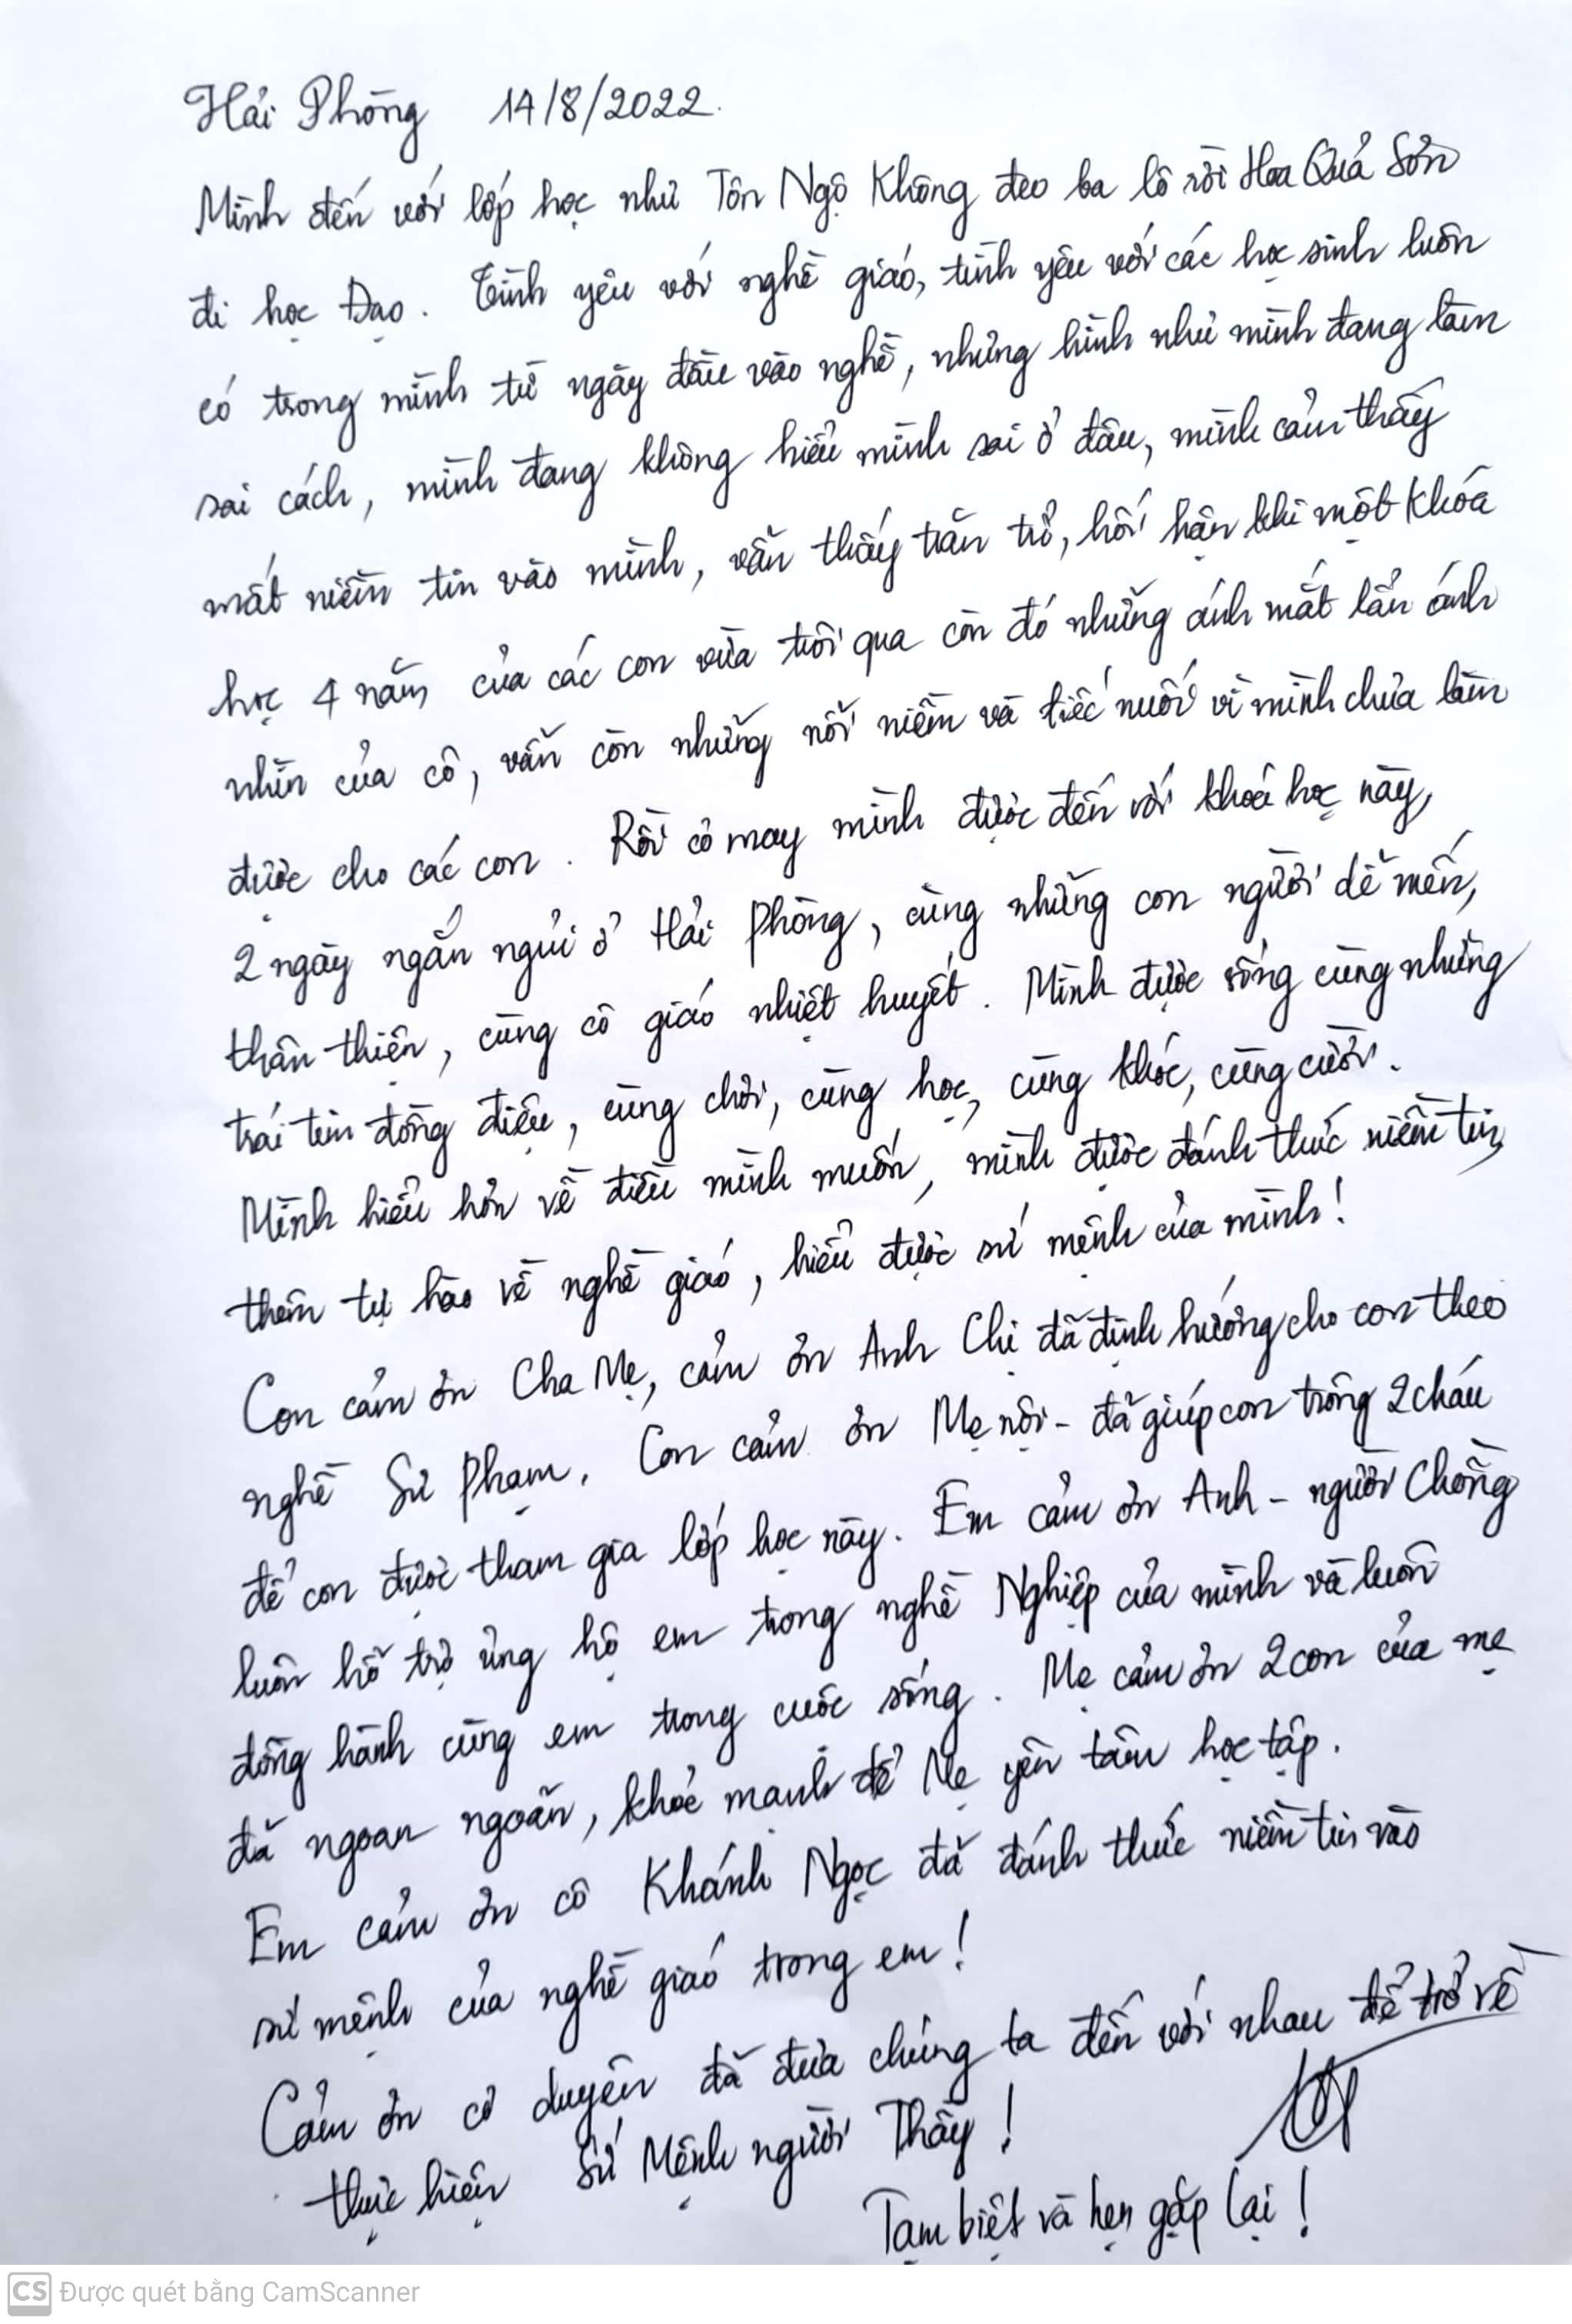 Hải Phòng 14/8/2022.
Mình đến với lớp học như Tôn Ngộ Không đeo ba lô rời Hoa Quả Sơn
đi học Đạo. Tình yêu với nghề giáo, tình yêu với các học sinh luôn
có trong mình từ ngày đầu vào nghề, nhưng hình như mình đang làm
sai cách, mình đang không hiểu mình sai ở đâu, mình cảm thấy
mất niềm tin vào mình, vẫn thấy trăn trở, hối hận khi một khóa
học 4 năm của các con vừa trôi qua còn đó những ánh mắt lẩn ánh
nhìn của cô, vẫn còn những nỗi niềm và tiếc nuối vì mình chưa làm
được cho các con. Rồi cơ may mình được đến với khoá học này,
2 ngày ngắn ngủi ở Hải Phòng, cùng những con người dễ mến,
thân thiện, cùng cô giáo nhiệt huyết. Mình được sống cùng những
trái tim đồng điệu, cùng chơi, cùng học, cùng khóc, cùng cười.
Mình hiểu hơn về điều mình muốn, mình được đánh thức niềm tin,
thêm tự hào về nghề giáo, hiểu được sứ mệnh của mình!
Con cảm ơn Cha Mẹ, cảm ơn Anh Chị đã định hướng cho con theo
nghề Sư Phạm. Con cảm ơn Mẹ nội - đã giúp con trông 2 cháu
để con được tham gia lớp học này. Em cảm ơn Anh - người Chồng
luôn hỗ trợ ủng hộ em trong nghề Nghiệp của mình và luôn
đồng hành cùng em trong cuộc sống. Mẹ cảm ơn 2 con của mẹ
đã ngoan ngoãn, khỏe mạnh để Mẹ yên tâm học tập.
Em cảm ơn cô Khánh Ngọc đã đánh thức niềm tin vào
sứ mệnh của nghề giáo trong em!
Cảm ơn cơ duyên đã đưa chúng ta đến với nhau để trở về
thực hiện Sứ Mệnh người Thầy!
Tạm biệt và hẹn gặp lại!
CS Được quét bằng CamScanner